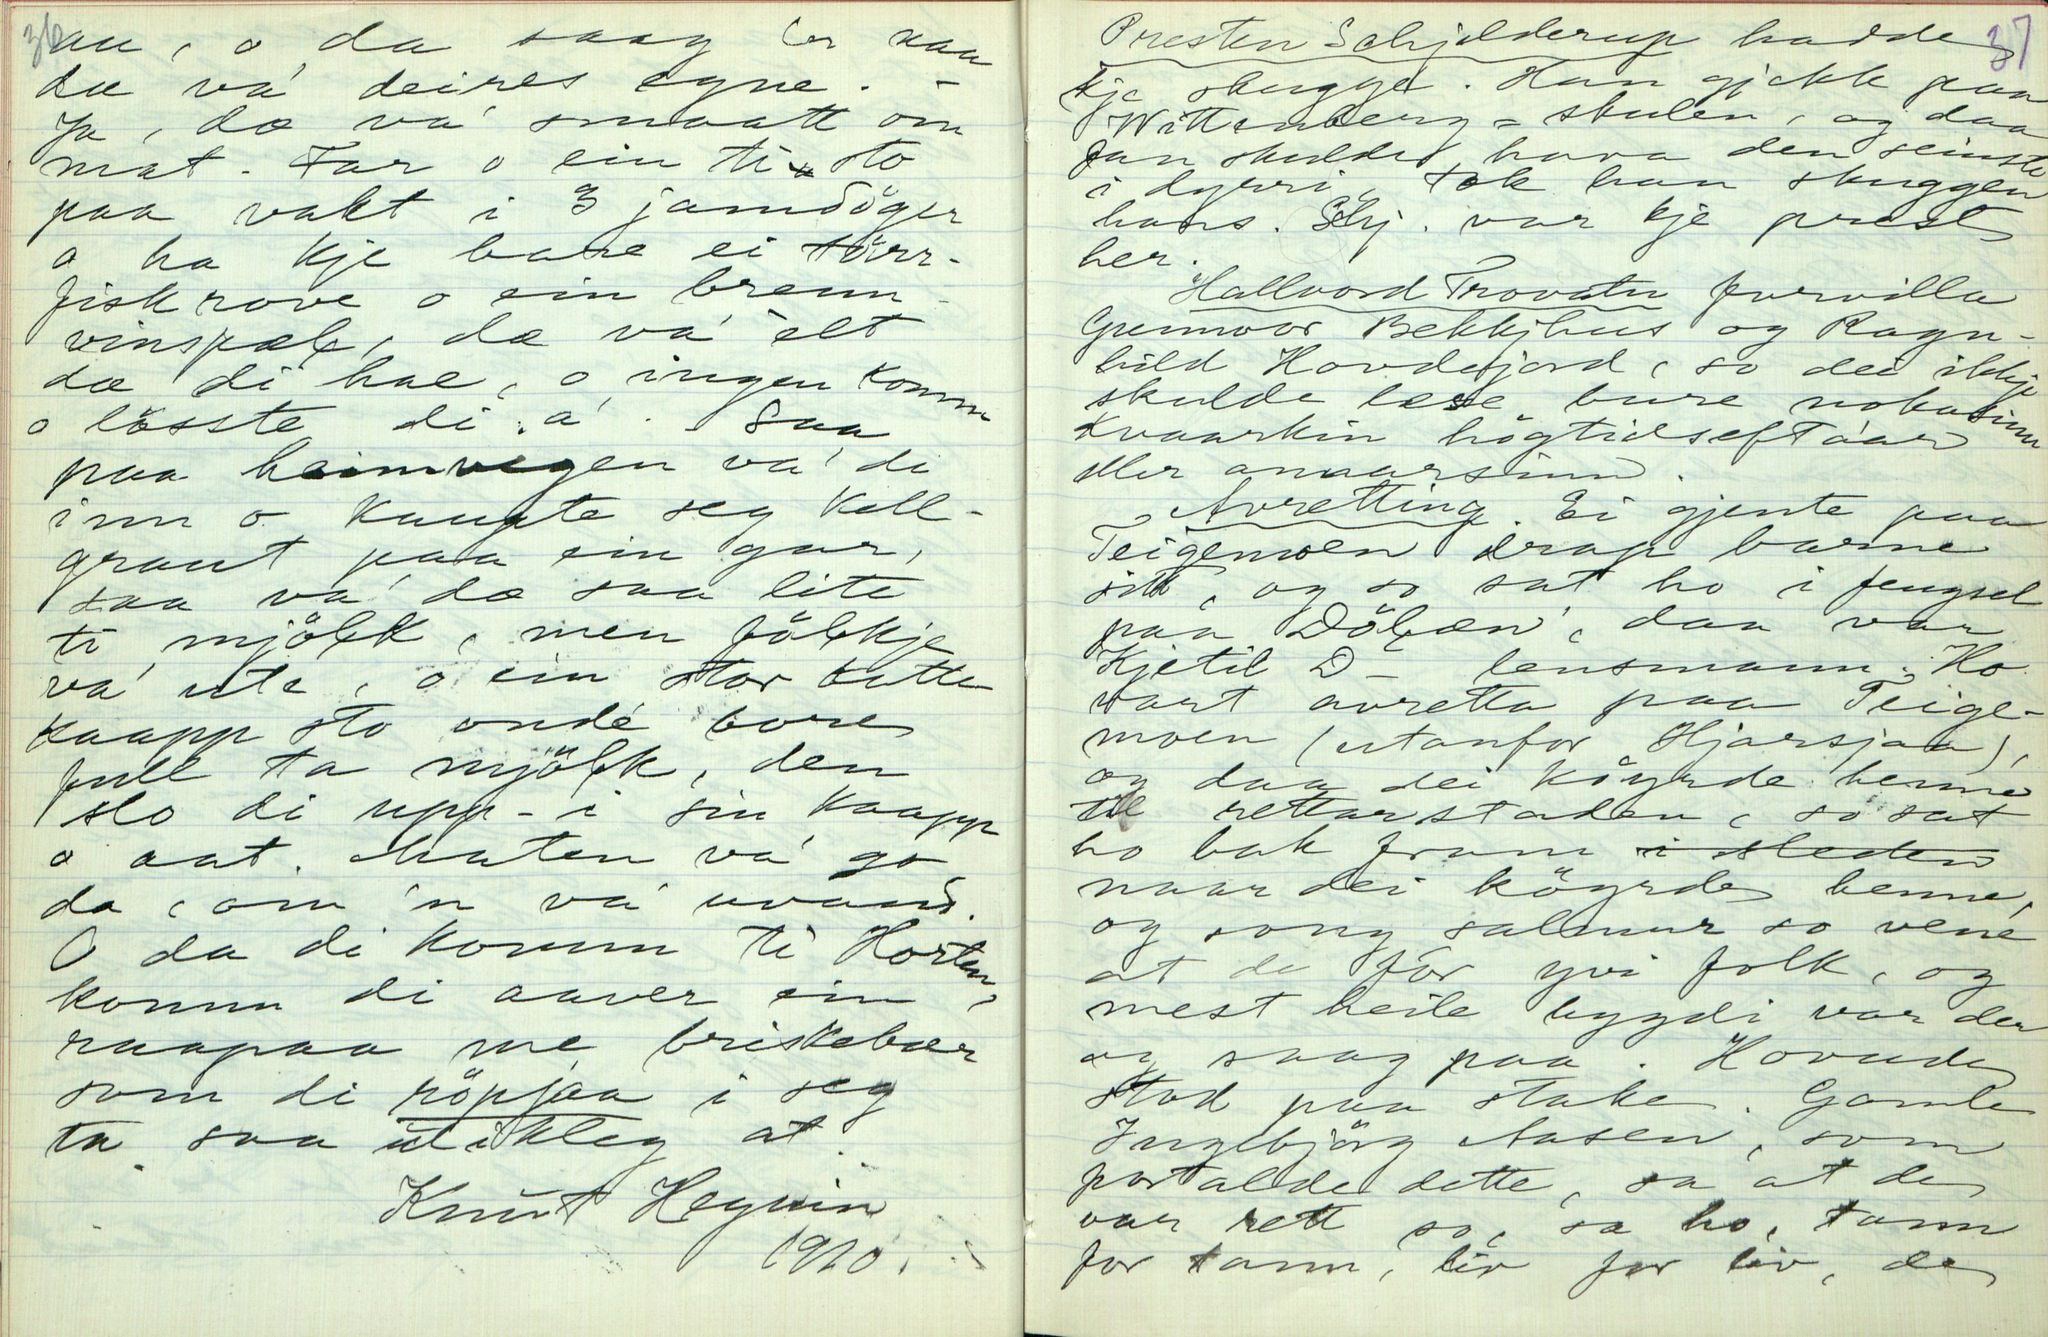 36
au, o da saag er naa
dæ va' deires egne. -
Ja, dæ va' smaatt om
mat. Far o ein ti sto
paa vakt i 3 jamdöger
o ha kje bare ei törr-
fiskrove o ein brenn-
vinspæl, dæ va' alt
dæ di hae, o ingen komm
o lösste di a'. Saa
paa heimvegen va' di
inn o kaupte seg koll-
graut paa ein gar,
saa va' dæ saa lite
ti mjölk, men fölkje
va' ute, o ein stor
kaapp sto onde' bore
full ta mjölk, den
slo di upp-i sin kaapp
o aat. Maten va' go
da, om 'n va' uvand.
O da di komm ti Horten,
komm di aaver ein
raapaa me briskebær
som di röpjaa i seg
ta saa utikleg at.
Knut Hegnin
1910.
37
Presten Schjelderup hadde
kje skugge. Han gjekk paa
Wittenberg=skulen, og daa
fan skulde hava den seinste
i dyrri, tok han skuggen
hans. Schj. var kje prest
her.
Hallvord Trovatn forvilla
Gunnvor Bekkjhus og Ragn-
hild Hovdejord, so dei ikkje
skulde lese bure nokosinn
kvaarkin högtidseftaar
eller anaarsinn.
Avretting. Ei gjente paa
Teigemoen drap barne
sitt, og so sat ho i fengsel
paa Dölæn', daa var
Kjetil D- lensmann. Ho
vart avretta paa Teige-
moen (utanfor Hjarsjaa),
og daa dei köyrde henne
til rettarstaden, so sat
ho bak fram i sleden
naar dei köyrde henne,
og song salmur so vene
at de for yvi folk, og
mest heile bygdi var der
og saag paa. Hovude
stod paa stake. Gamle
Ingebjörg Aasen, som
fortalde dette, sa at de
var rett so, sa ho, tann
for tann, liv for liv, de